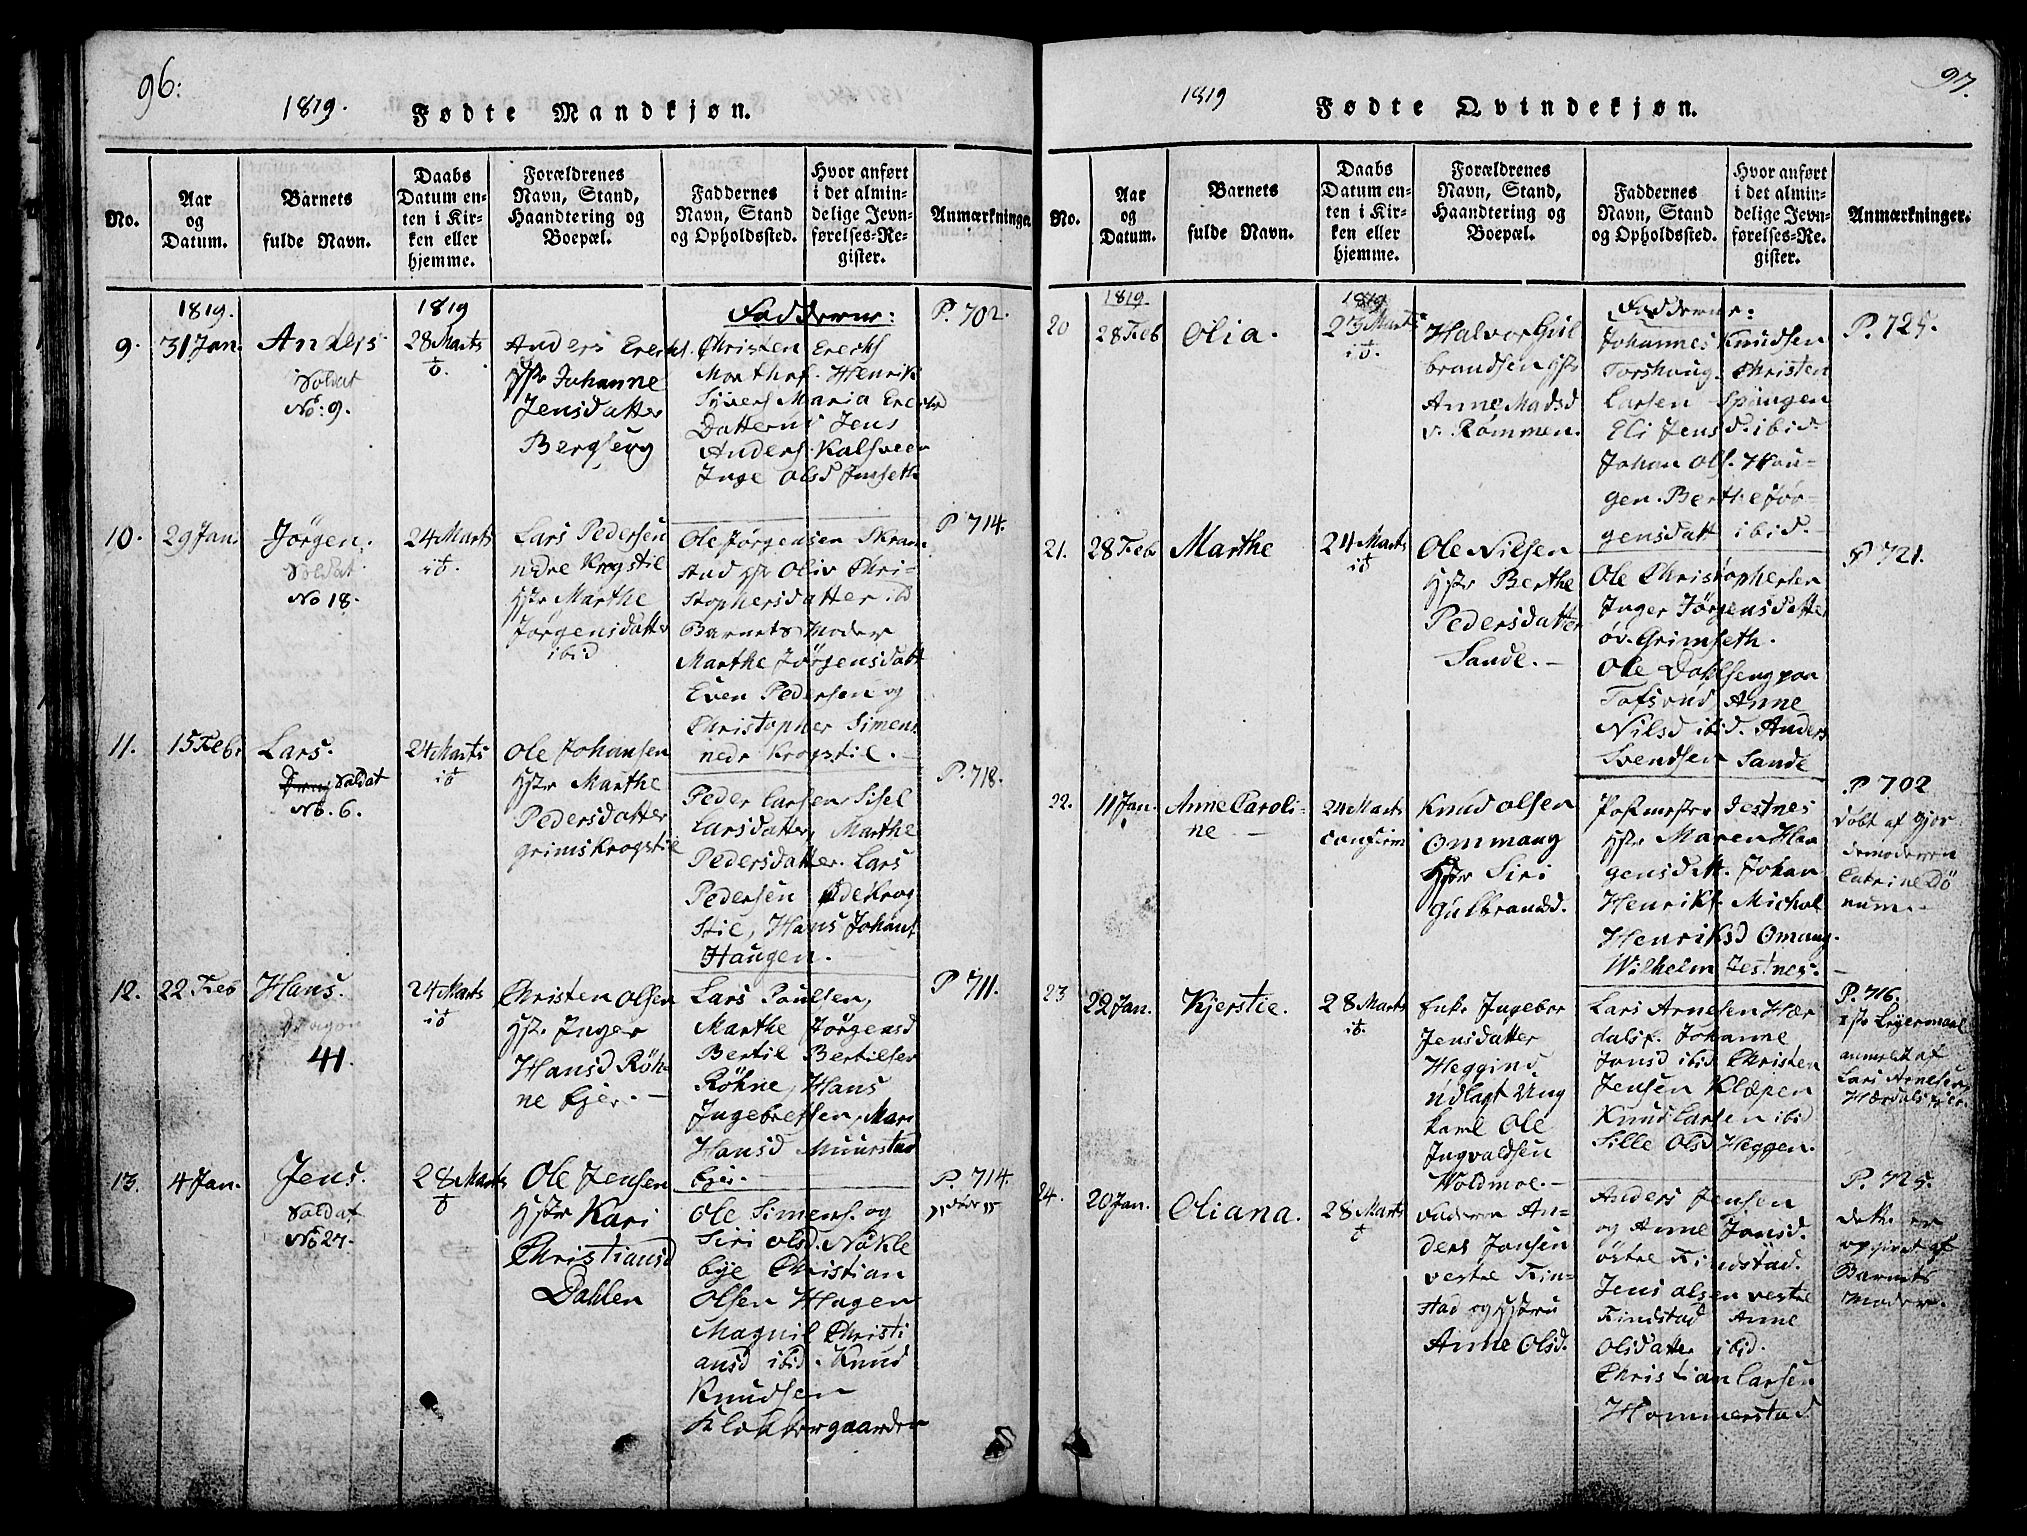 96.
1819.
Fødte Mandkjøn.
No.
Aar
og
Datum.
Barnets
fulde Navn.
Daabs
Datum en-
ten i Kir-
ken eller
hjemme.
Forældrenes
Navn, Stand,
Haandtering og
Boepæl.
Faddernes
Navn, Stand
og Opholdssted.
Hvor anført
i det almin-
delige Jevn-
førelses-Re-
gister.
Anmærkninger
1819.
1819
Fadderne:
9.
31 Jan.
Anders
Soldat
No: 9.
28 Marts
Anders Erichs.
Hstr Johanne
Jensdatter
Bergseng
Christen Erichs
Henrik
Sivers Maria
Datterud Jens
Anders. Kalsveen
Inge Olsd
P. 702.
10.
29 Jan
Jörgen.
Soldat
No 18.
24 Marts
Lars Pedersen
nedre Krogstie
Hstr Marthe
Jörgensdatter
ibid
Ole Jörgensen Skram-
stad Hstr Oliv Chri-
stophersdatter ibd
Barnets Moder
Marthe Jörgensdatt
Even Pedersen og
Christopher Simens
nedr Krogstie.
P 714.
11.
15 Feb.
Lars.
Soldat
No. 6.
24 Marts
Ole Johansen
Hstr Marthe
Pedersdatter
Grimskrogstie
Peder Larsen Sisel
Larsdatter, Marthe
Pedersdatter. Lars
Pedersen Ødekrog
stie, Hans Johans
Haugen.
P. 718.
12.
22 Feb
Hans.
Dragon
41.
24 Marts
Christen Olsen
Hstr. Inger
Hansd Röh-
ne Ejer.
Lars Poulsen,
Marthe Jörgensd
Bertil Bertilsen
Röhne, Hans
Ingebretsen, Mari
Hansd Muurstad
Ejer.
P 711.
13.
4 Jan.
Jens.
Soldat
No 27.
28 Marts
Ole Jensen
Hstr Kari
Christiansd
Dahlen
Ole Simens. og
Siri Olsd. Nökle
bye Christian
Olsen Hagen
Magnil Christi
ansd ibid. Knud
Knudsen
Klokkergaarden
P. 714.
97.
1819
Fødte Qvindekjøn.
No.
Aar
og
Datum.
Barnets
fulde Navn.
Daabs
Datum en-
ten i Kir-
ken eller
hjemme.
Forældrenes
Navn, Stand,
Haandtering og
Boepæl.
Faddernes
Navn, Stand
og Opholdssted.
Hvor anført
i det almin-
delige Jevn-
førelses-Re-
gister.
Anmærkninger.
1819.
1819
Fadderne:
20
28 Feb
Olia.
Marts
Halvor Gul
brandsen Hstr
Anne Madsd
v. Rommen.
Johannes Knudsen
Torshaug. Christen
Larsen Spangen
Eli Jensd. ibid.
Johan Ols. Hau-
gen. Berthe Jör-
gensdatt ibid.
P. 725.
21.
28 Feb
Marthe
24 Marts
Ole Nilsen
Hstr Berthe
Pedersdatter
Sande.
Ole Christophersen
Inger Jörgensdatter
öv. Grimseth.
Ole Dahlseng paa
Tofsrud Anne
Nilsd ibid. Anders
Svendsen Sande
P 721.
22.
11 Jan.
Anne Caroli-
ne
24 Marts
confirm
Knud Olsen
Ommang
Hstr Siri
Gulbrandsd.
Postmester Jestnes
Hstr Maren Han
gensd M. Johan
Henriks. Michel
Henriksd Omang.
Wilhelm Jestnes.
P 702
döbt af Gjor-
demoderen
Catrine Dö
num.
23
22 Jan.
Kjerstie.
28 Marts
Enke Ingebor
Jensdatter
Heggind
Udlagt Ung
karl Ole
Ingvaldsen
Woldmoe.
Lars Arnesen Hær
dalsf. Johanne
Jonsd ibid Christen
Jensen Klæpen
Knud Larsen ibid
Sille Olsd Heggen.
P. 716.
1ste Leyermaal
anmeldt af
Lars Arnesen
24.
20 Jan.
Oliana.
28 Marts
Faderen An-
ders Jonsen
vestre Fin-
stad og Hstru
Anne Olsd.
Anders Jensen
og Anne Jonsd.
östre Findstad.
Jens Olsen vestre
Findstad Anne
Olsdatter ibid.
Christian Larsen
Hommerstad
P. 725.
dette er
opgivet af
Barnets
Moder.